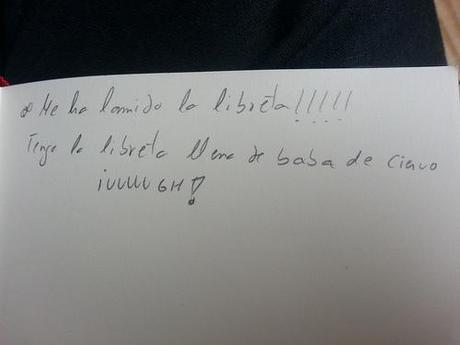 ∞ Me ha lamido la libreta!!!!!
Tengo la libreta llena de baba de ciervo
¡UUUUUGH!